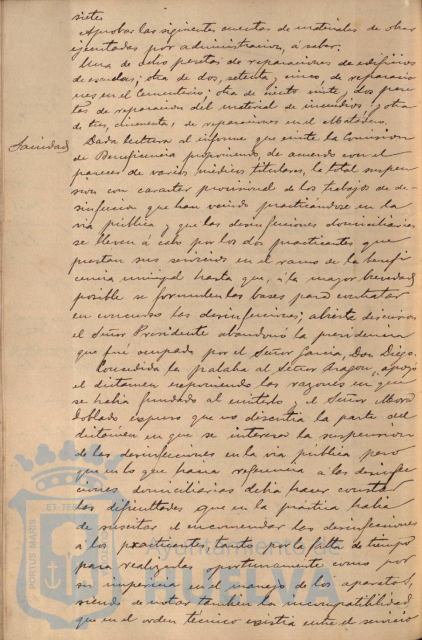 sietes
Aprobar las siguientes cuentas de materiales de obras
ejecutadas por administracion, á saber:
Una de ocho pesetas de reparaciones de edificios
de escuelas; otra de dos, setenta y cinco, de reparacio
nes en el Cementerio; otra de ciento veinte y dos pese
tas de reparacion del material de incendios y otra
de tres, cincuenta, de reparaciones en el Matadero.
Sanidad
Dada lectura al informe que emite la Comision
de Beneficencia proponiendo, de acuerdo con el
parecer de varios médicos titulares, la total suspen
sion con caracter provisional de los trabajos de de-
sinfeccion que han venido practicándose en la
via pública y que las desinfecciones domiciliarias
se lleven á cabo por los dos practicantes que
prestan sus servicios en el ramo de la benefi
cencia municipal hasta que, á la mayor brevedad
posible se formulen las bases para contratar
en concurso las desinfecciones; abierta discusion
el Señor Presidente abandonó la presidencia
que fué ocupada por el Señor Garcia, Don Diego.
Concedida la palabra al Señor Aragon, apoyó
el dictamen exponiendo las razones en que
se habia fundado al emitirlo, y el Señor Mora
Doblado expuso que no discutia la parte del
dictámen en que se interesa la suspension
de las desinfecciones en la via pública pero
que en lo que hacia referencia a las desinfec
ciones domiciliarias debia hacer constar
las dificultades que en la práctica habia
de suscitar el encomendar las desinfecciones
á los practicantes tanto por la falta de tiempo
para realizarlas oportunamente como por
su impericia en el manejo de los aparatos,
siendo de notar tambien la incompatibilidad
que en el orden técnico existia entre el servicio
PORTUS MARIS
ET TER
Ayuntamiento de
HUELVA